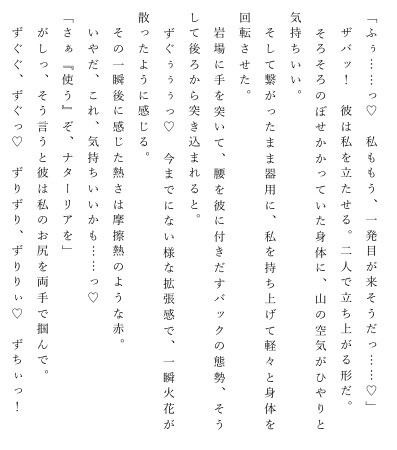 「ふぅ……っ♡　私ももう、一発目が来そうだっ……♡」
　ザバッ！　彼は私を立たせる。二人で立ち上がる形だ。
　そろそろのぼせかかっていた身体に、山の空気がひやりと
気持ちいい。
　そして繋がったまま器用に、私を持ち上げて軽々と身体を
回転させた。
　岩場に手を突いて、腰を彼に付きだすバックの態勢、そう
して後ろから突き込まれると。
　ずぐぅぅぅっ♡　今までにない様な拡張感で、一瞬火花が
散ったように感じる。
　その一瞬後に感じた熱さは摩擦熱のような赤。
　いやだ、これ、気持ちいいかも……っ♡
「さぁ『使う』ぞ、ナターリアを」
　がしっ、そう言うと彼は私のお尻を両手で掴んで。
　ずぐぐ、ずぐっ♡　ずりずり、ずりりぃ♡　ずちぃっ！